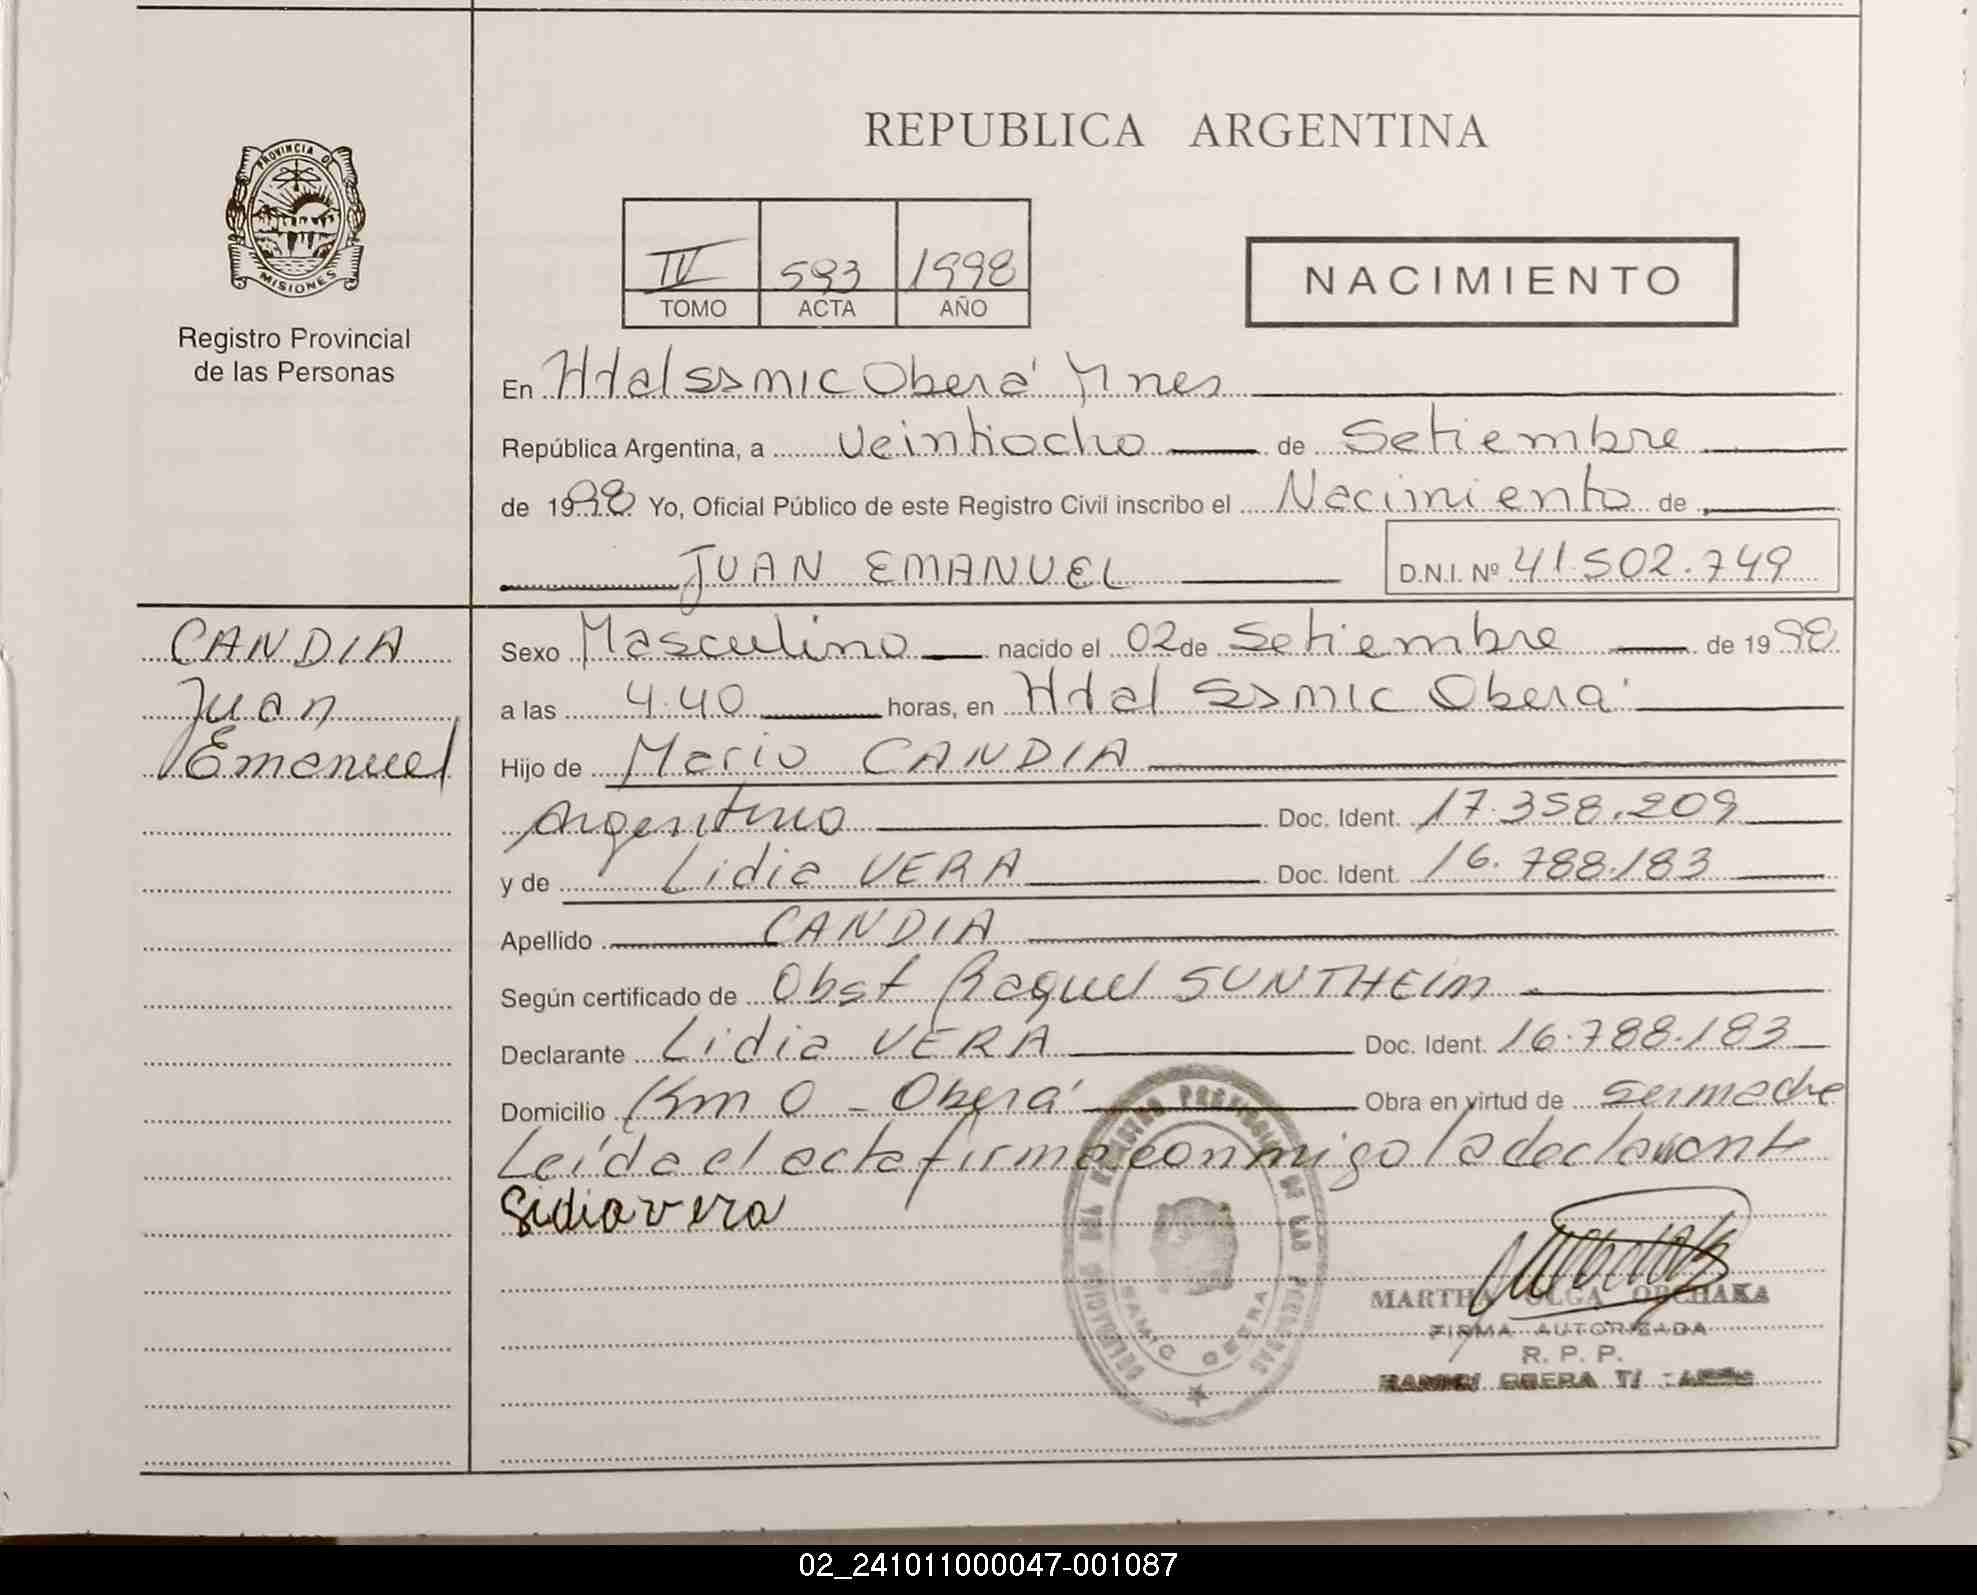 PROVINCIA DE
MISIONES
Registro Provincial
de las Personas
REPUBLICA ARGENTINA
IV 593 1998
TOMO ACTA AÑO
NACIMIENTO
En Htal SSMIC Oberá Mnes
República Argentina, a veintiocho de Setiembre
de 1998 Yo, Oficial Público de este Registro Civil inscribo el Nacimiento de
JUAN EMANUEL D.N.I. Nº 41.502.749
CANDIA
Juan
Emanuel
Sexo Masculino nacido el 02 de Setiembre de 1998
a las 4.40 horas, en Htal SSMIC Oberá
Hijo de Mario CANDIA
Argentino Doc. Ident. 17.358.209
y de Lidia VERA Doc. Ident. 16.788.183
Apellido CANDIA
Según certificado de Obst Raquel SUNTHEIM
Declarante Lidia VERA Doc. Ident. 16.788.183
Domicilio Km 0 - Oberá Obra en virtud de ser madre
Leída el acta firma conmigo la declarante
Lidia vera
MARTHA OLGA
FIRMA AUTORIZADA
R. P. P.
SAMIC OBERA
02_241011000047-001087